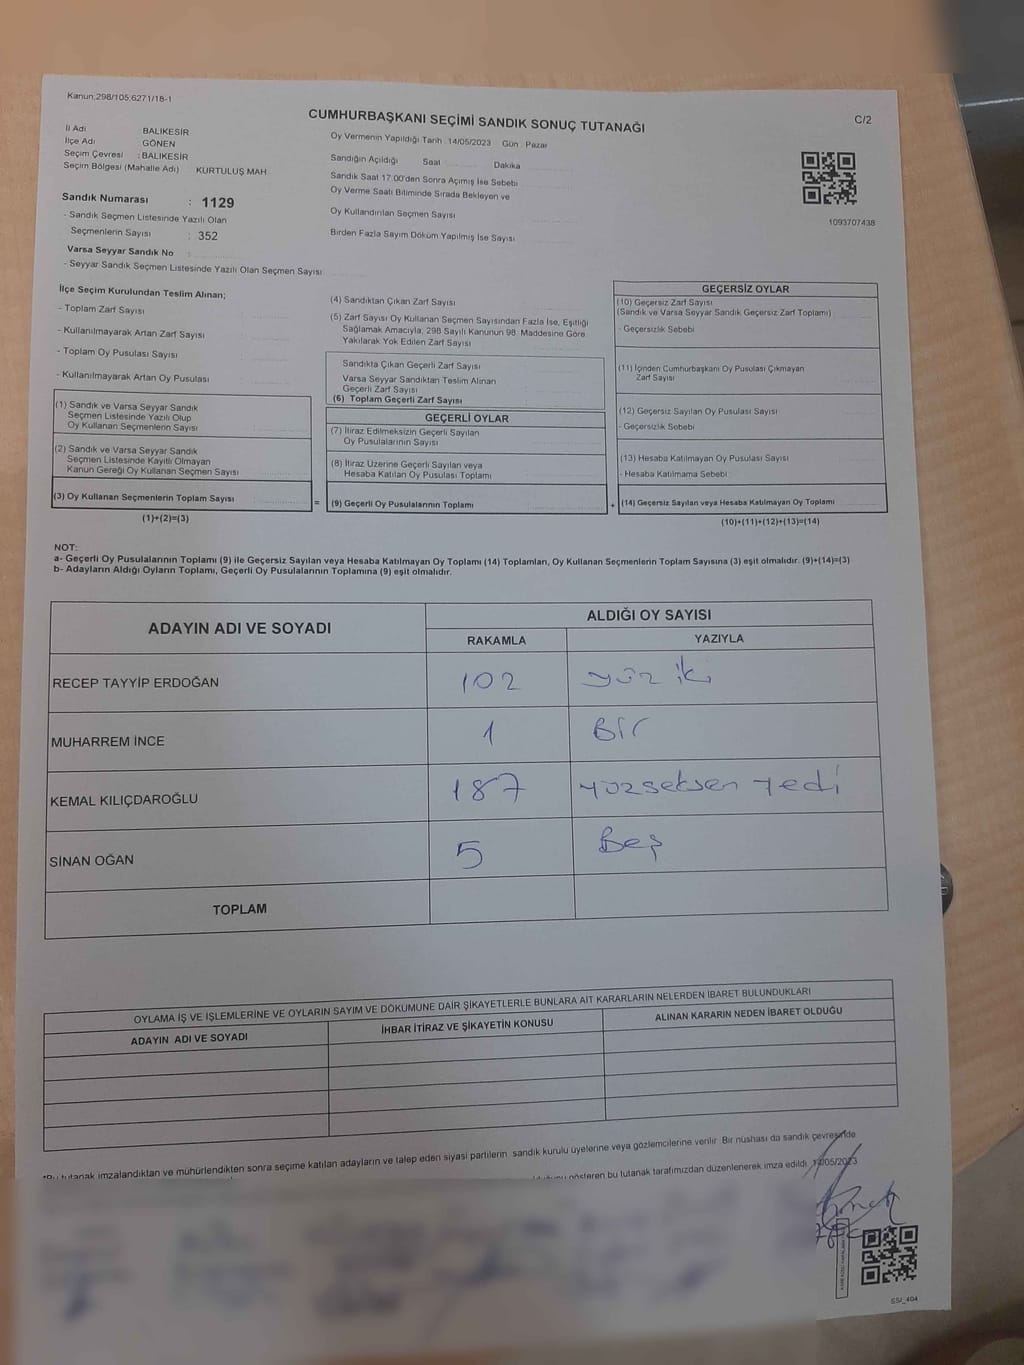 Kanun:298/105;6271/18-1
CUMHURBAŞKANI SEÇİMİ SANDIK SONUÇ TUTANAĞI
C/2
İl Adı BALIKESİR
İlçe Adı GÖNEN
Seçim Çevresi : BALIKESİR
Seçim Bölgesi (Mahalle Adı) KURTULUŞ MAH.
Oy Vermenin Yapıldığı Tarih : 14/05/2023 Gün : Pazar
Sandığın Açıldığı Saat Dakika
Sandık Saat 17.00'den Sonra Açımış İse Sebebi
Oy Verme Saati Bitiminde Sırada Bekleyen ve
Oy Kullandırılan Seçmen Sayısı
Birden Fazla Sayım Döküm Yapılmış İse Sayısı
1093707438
Sandık Numarası : 1129
- Sandık Seçmen Listesinde Yazılı Olan
Seçmenlerin Sayısı : 352
Varsa Seyyar Sandık No :
- Seyyar Sandık Seçmen Listesinde Yazılı Olan Seçmen Sayısı
İlçe Seçim Kurulundan Teslim Alınan;
- Toplam Zarf Sayısı
- Kullanılmayarak Artan Zarf Sayısı
- Toplam Oy Pusulası Sayısı
- Kullanılmayarak Artan Oy Pusulası
(1) Sandık ve Varsa Seyyar Sandık
Seçmen Listesinde Yazılı Olup
Oy Kullanan Seçmenlerin Sayısı
(2) Sandık ve Varsa Seyyar Sandık
Seçmen Listesinde Kayıtlı Olmayan
Kanun Gereği Oy Kullanan Seçmen Sayısı
(3) Oy Kullanan Seçmenlerin Toplam Sayısı
(1)+(2)=(3)
(4) Sandıktan Çıkan Zarf Sayısı
(5) Zarf Sayısı Oy Kullanan Seçmen Sayısından Fazla İse, Eşitliği
Sağlamak Amacıyla, 298 Sayılı Kanunun 98. Maddesine Göre
Yakılarak Yok Edilen Zarf Sayısı
Sandıkta Çıkan Geçerli Zarf Sayısı
Varsa Seyyar Sandıktan Teslim Alınan
Geçerli Zarf Sayısı
(6) Toplam Geçerli Zarf Sayısı
GEÇERLİ OYLAR
(7) İtiraz Edilmeksizin Geçerli Sayılan
Oy Pusulalarının Sayısı
(8) İtiraz Üzerine Geçerli Sayılan veya
Hesaba Katılan Oy Pusulası Toplamı
=
(9) Geçerli Oy Pusulalarının Toplamı
+
GEÇERSİZ OYLAR
(10) Geçersiz Zarf Sayısı
(Sandık ve Varsa Seyyar Sandık Geçersiz Zarf Toplamı)
- Geçersizlik Sebebi
(11) İçinden Cumhurbaşkanı Oy Pusulası Çıkmayan
Zarf Sayısı
(12) Geçersiz Sayılan Oy Pusulası Sayısı
- Geçersizlik Sebebi
(13) Hesaba Katılmayan Oy Pusulası Sayısı
- Hesaba Katılmama Sebebi
(14) Geçersiz Sayılan veya Hesaba Katılmayan Oy Toplamı
(10)+(11)+(12)+(13)=(14)
NOT:
a- Geçerli Oy Pusulalarının Toplamı (9) ile Geçersiz Sayılan veya Hesaba Katılmayan Oy Toplamı (14) Toplamları, Oy Kullanan Seçmenlerin Toplam Sayısına (3) eşit olmalıdır. (9)+(14)=(3)
b- Adayların Aldığı Oyların Toplamı, Geçerli Oy Pusulalarının Toplamına (9) eşit olmalıdır.
ADAYIN ADI VE SOYADI
ALDIĞI OY SAYISI
RAKAMLA YAZIYLA
RECEP TAYYİP ERDOĞAN 102 yüz iki
MUHARREM İNCE 1 Bir
KEMAL KILIÇDAROĞLU 187 yüzseksen yedi
SİNAN OĞAN 5 Beş
TOPLAM
OYLAMA İŞ VE İŞLEMLERİNE VE OYLARIN SAYIM VE DÖKÜMÜNE DAİR ŞİKAYETLERLE BUNLARA AİT KARARLARIN NELERDEN İBARET BULUNDUKLARI
ADAYIN ADI VE SOYADI İHBAR İTİRAZ VE ŞİKAYETİN KONUSU ALINAN KARARIN NEDEN İBARET OLDUĞU
*Bu tutanak imzalandıktan ve mühürlendikten sonra seçime katılan adayların ve talep eden siyasi partilerin sandık kurulu üyelerine veya gözlemcilerine verilir. Bir nüshası da sandık çevresinde
gösteren bu tutanak tarafımızdan düzenlenerek imza edildi. 14/05/2023
SSI_404